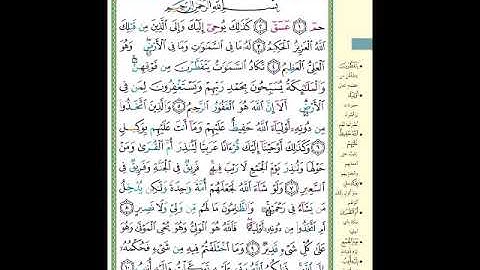 بِسْمِ اللَّهِ الرَّحْمَٰنِ الرَّحِيمِ
حمٓ ١ عٓسٓقٓ ٢ كَذَٰلِكَ يُوحِىٓ إِلَيْكَ وَإِلَى الَّذِينَ مِن قَبْلِكَ
اللَّهُ الْعَزِيزُ الْحَكِيمُ ٣ لَهُۥ مَا فِى السَّمَٰوَٰتِ وَمَا فِى الْأَرْضِ وَهُوَ
الْعَلِىُّ الْعَظِيمُ ٤ تَكَادُ السَّمَٰوَٰتُ يَتَفَطَّرْنَ مِن فَوْقِهِنَّ
وَالْمَلَٰٓئِكَةُ يُسَبِّحُونَ بِحَمْدِ رَبِّهِمْ وَيَسْتَغْفِرُونَ لِمَن فِى
الْأَرْضِ أَلَآ إِنَّ اللَّهَ هُوَ الْغَفُورُ الرَّحِيمُ ٥ وَالَّذِينَ اتَّخَذُوا
مِن دُونِهِۦٓ أَوْلِيَآءَ اللَّهُ حَفِيظٌ عَلَيْهِمْ وَمَآ أَنتَ عَلَيْهِم بِوَكِيلٍ
٦ وَكَذَٰلِكَ أَوْحَيْنَآ إِلَيْكَ قُرْءَانًا عَرَبِيًّا لِّتُنذِرَ أُمَّ الْقُرَىٰ وَمَنْ
حَوْلَهَا وَتُنذِرَ يَوْمَ الْجَمْعِ لَا رَيْبَ فِيهِ فَرِيقٌ فِى الْجَنَّةِ وَفَرِيقٌ فِى
السَّعِيرِ ٧ وَلَوْ شَآءَ اللَّهُ لَجَعَلَهُمْ أُمَّةً وَٰحِدَةً وَلَٰكِن يُدْخِلُ
مَن يَشَآءُ فِى رَحْمَتِهِۦ وَالظَّٰلِمُونَ مَا لَهُم مِّن وَلِىٍّ وَلَا نَصِيرٍ ٨
أَمِ اتَّخَذُوا مِن دُونِهِۦٓ أَوْلِيَآءَ فَاللَّهُ هُوَ الْوَلِىُّ وَهُوَ يُحْىِ الْمَوْتَىٰ وَهُوَ
عَلَىٰ كُلِّ شَىْءٍ قَدِيرٌ ٩ وَمَا اخْتَلَفْتُمْ فِيهِ مِن شَىْءٍ فَحُكْمُهُۥٓ
إِلَى اللَّهِ ذَٰلِكُمُ اللَّهُ رَبِّى عَلَيْهِ تَوَكَّلْتُ وَإِلَيْهِ أُنِيبُ ١٠